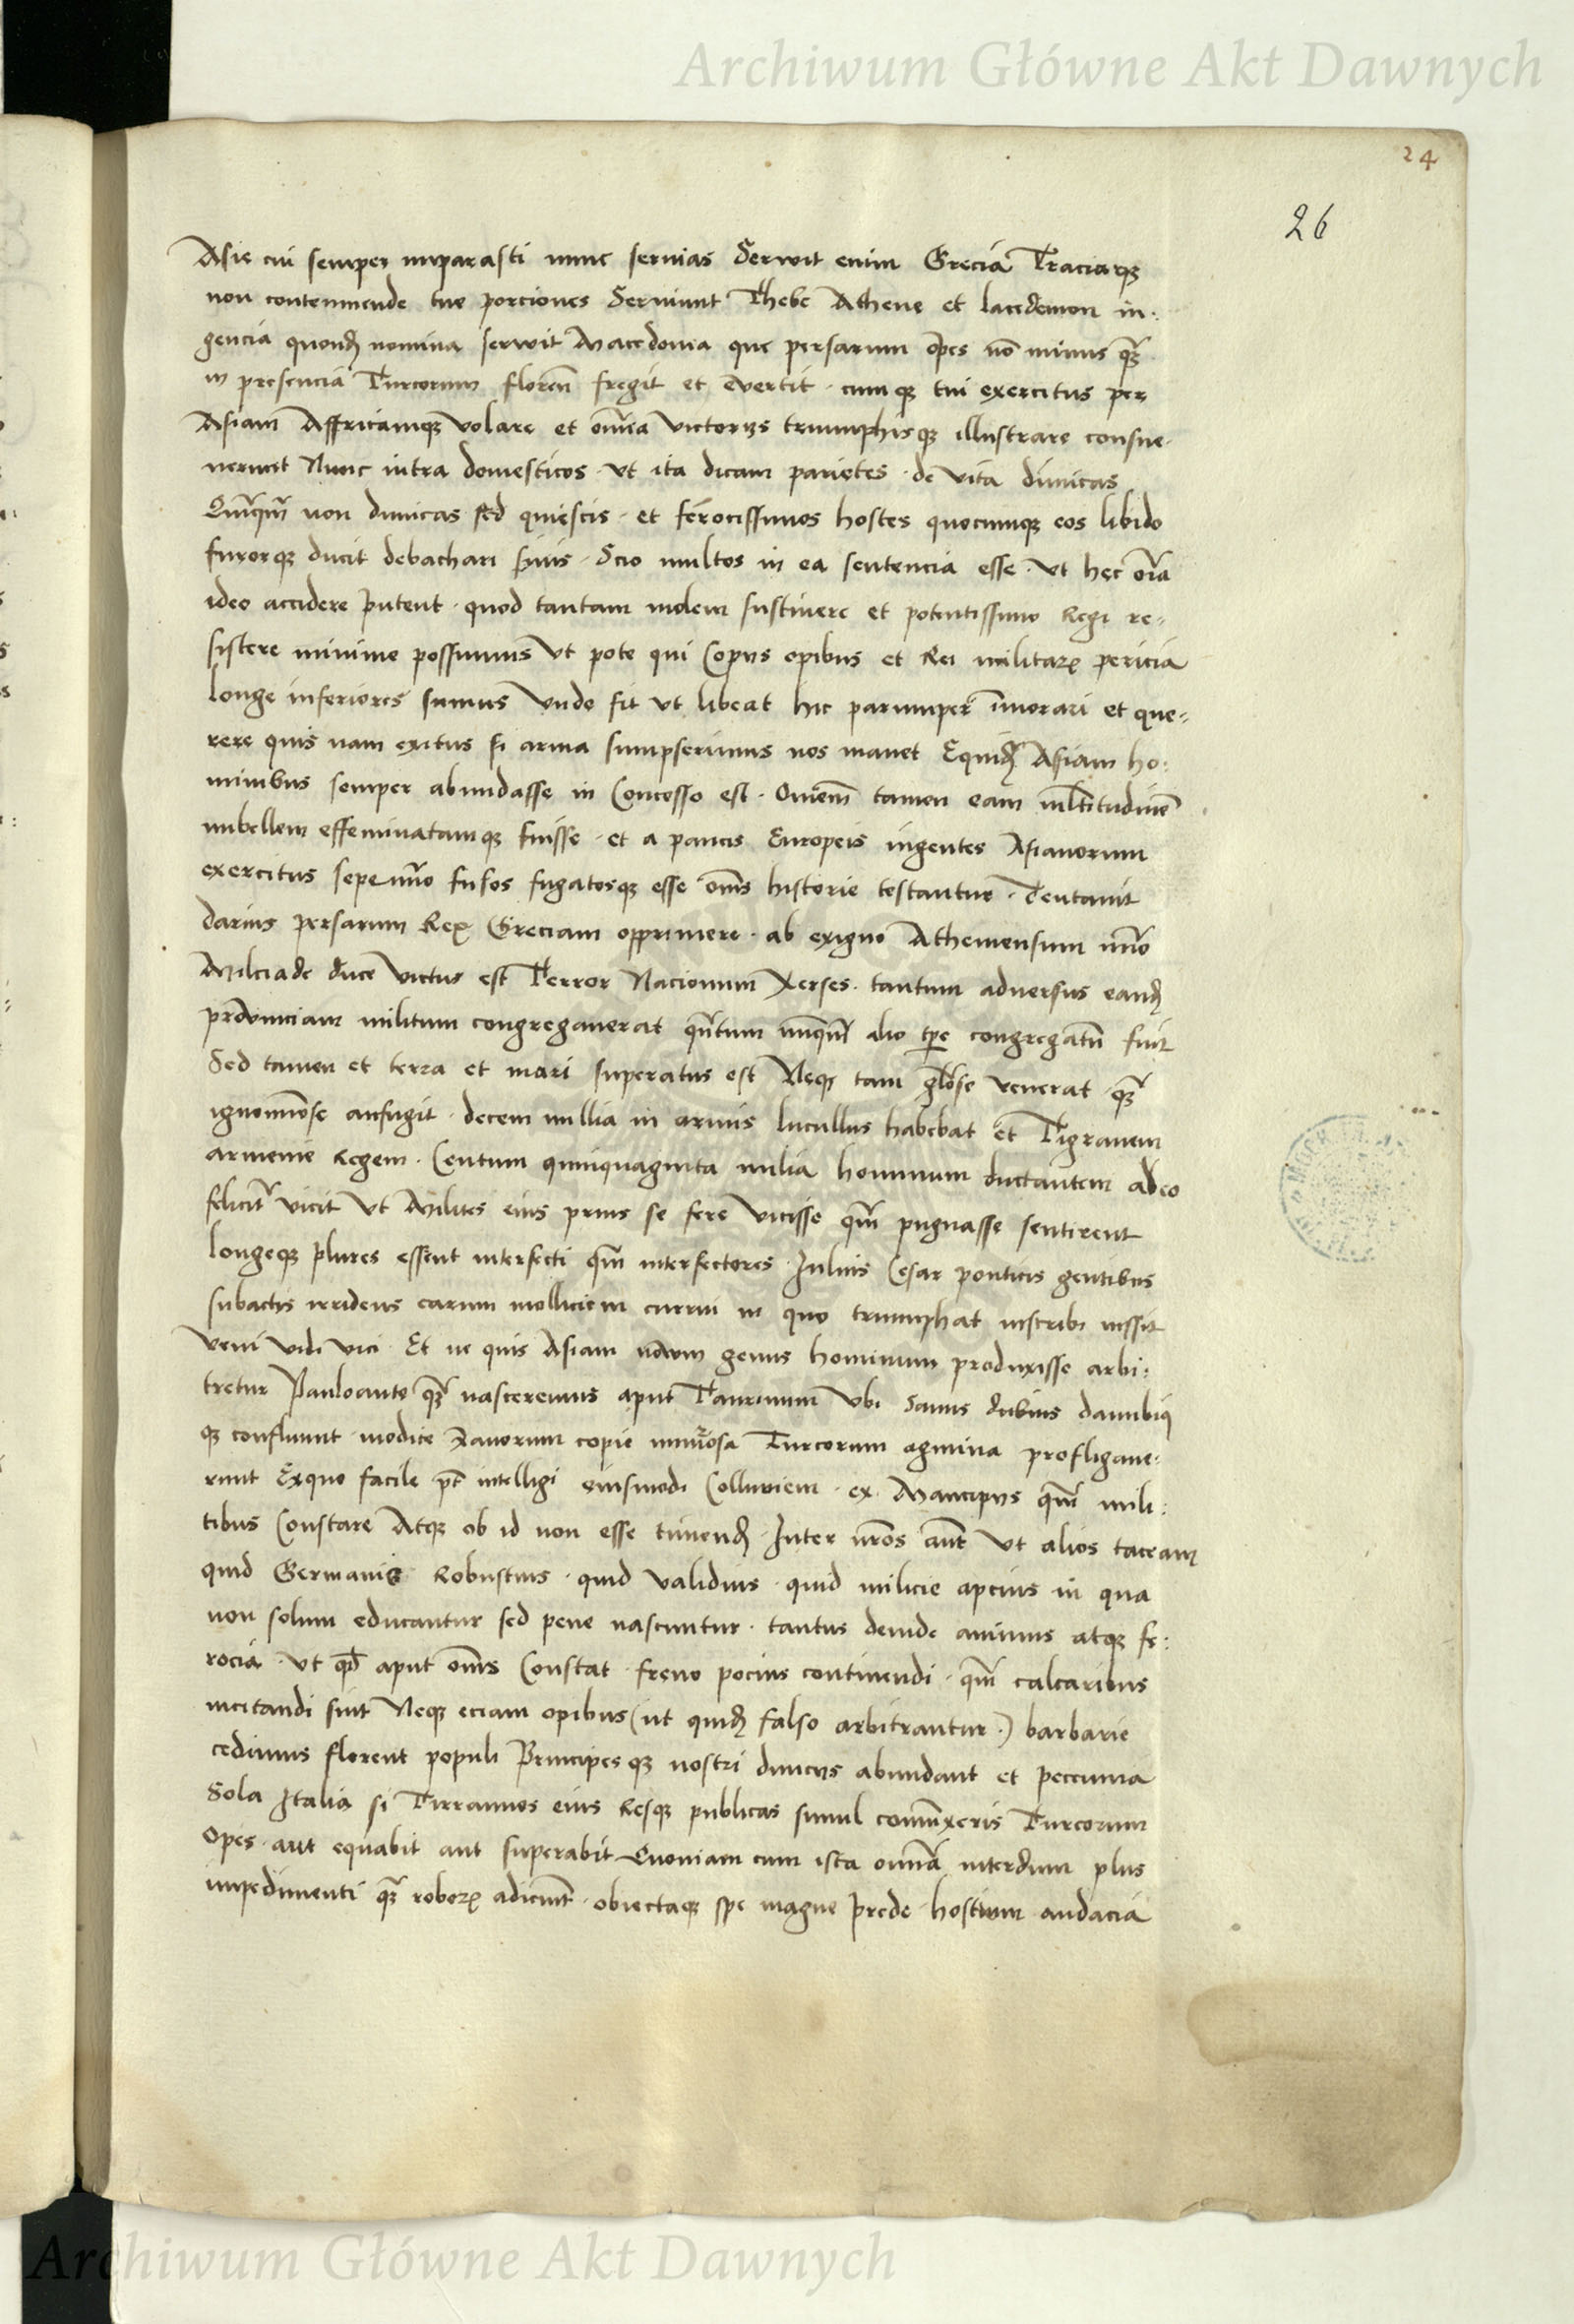 Archiwum Główne Akt Dawnych
24
26
Asie cui semper imparasti nunc seruias Serwit enim Grecia Traciaqꝫ
non contemnende tue porciones Seruiunt Thebe Athene et lacedemon in:
gencia quondꝫ nomina serwit Macedonia que persarum opes nō minus qꝫ
in presencia Turcorum floreñ fregit et evertit · cumqꝫ tui exercitus per
Asiam Affricamqꝫ volare et om̄ia victorijs triumphisqꝫ illustrare consue-
uerunt Nunc intra domesticos · vt ita dicam parietes · de vita dimicas
Quiqm̄ non dimicas sed quiescis · et ferocissimos hostes quocumqꝫ eos libido
furorqꝫ ducit debachari sinis · Scio multos in ea sentencia esse · vt hec oīa
ideo accidere putent · quod tantam molem sustinere et potentissimo Regi re-
sistere minime possumus Vt pote qui Copijs opibus et Rei militarꝫ pericia
longe inferiores sumus Vnde fit vt libeat hic parumper īmorari et que-
rere quis nam exitus si arma sumpserimus nos manet Equidꝫ Asiam ho:
minibus semper abundasse in Concesso est · Omnem̄ tamen eam mltitudinē
imbellem effeminatamqꝫ fuisse · et a paucis Europeis ingentes Asianorum
exercitus sepenūo fusos fugatosqꝫ esse om̄s historie testantur · Tentauit
darius persarum Rex Greciam opprimere · ab exiguo Atheniensum nūo
Milciade duce victus est Terror Nacionum Xerses · tantum aduersus eandꝫ
prouinciam militum congregauerat qn̄tum nunqm̄ alio tpe congregatū fuit
Sed tamen et terra et mari superatus est Neqꝫ tam glōse venerat · qꝫ
ignomiōse aufugit · decem millia in armis lucullus habebat et Tigranem
armenie Regem · Centum quinquaginta milia hominum ductantem adeo
felicit̄ vicit Vt Milites eius prius se fere vicisse qm̄ pugnasse sentirent
longeqꝫ plures essent interfecti qm̄ interfectores · Iulius Cesar ponticis gentibus
subactis irridens earum molliciem currui in quo triumphat inscribi iussit
veni vidi vici · Et ne quis Asiam nouum genus hominum produxisse arbi:
tretur Pauloante qꝫ nasceremus aput Taurinum vbi Sauus dubius danubiꝰ
qꝫ confluunt · modice Xānorum copie numerosa Turcorum agmina profligaue:
runt Exquo facile pt̄ intelligi eiusmodi Colluuiem · ex Mancipijs qm̄ mili:
tibus Constare Atqꝫ ob id non esse timendꝫ · Inter nr̄os aūt Vt alios taceam
quid Germanis Robustius · quid validius · quid milicie apcius in qua
non solum educantur sed pene nascuntur · tantus deinde animus atqꝫ fe:
rocia · Vt qđ aput om̄s Constat · freno pocius continendi · qm̄ calcaribus
incitandi sint Neqꝫ eciam opibus (ut quidꝫ falso arbitrantur ·) barbarie
cedimus florent populi Principesqꝫ nostri diuicijs abundant et peccunia
Sola Italia si Tirrannos eius Resqꝫ publicas simul comūxeris Turcorum
Opes · aut equabit aut superabit Quoniam cum ista omnia interdum plus
impedimenti qꝫ roborꝫ adiciunt · obiectaqꝫ spe magne prede · hostium audacia
Archiwum Główne Akt Dawnych